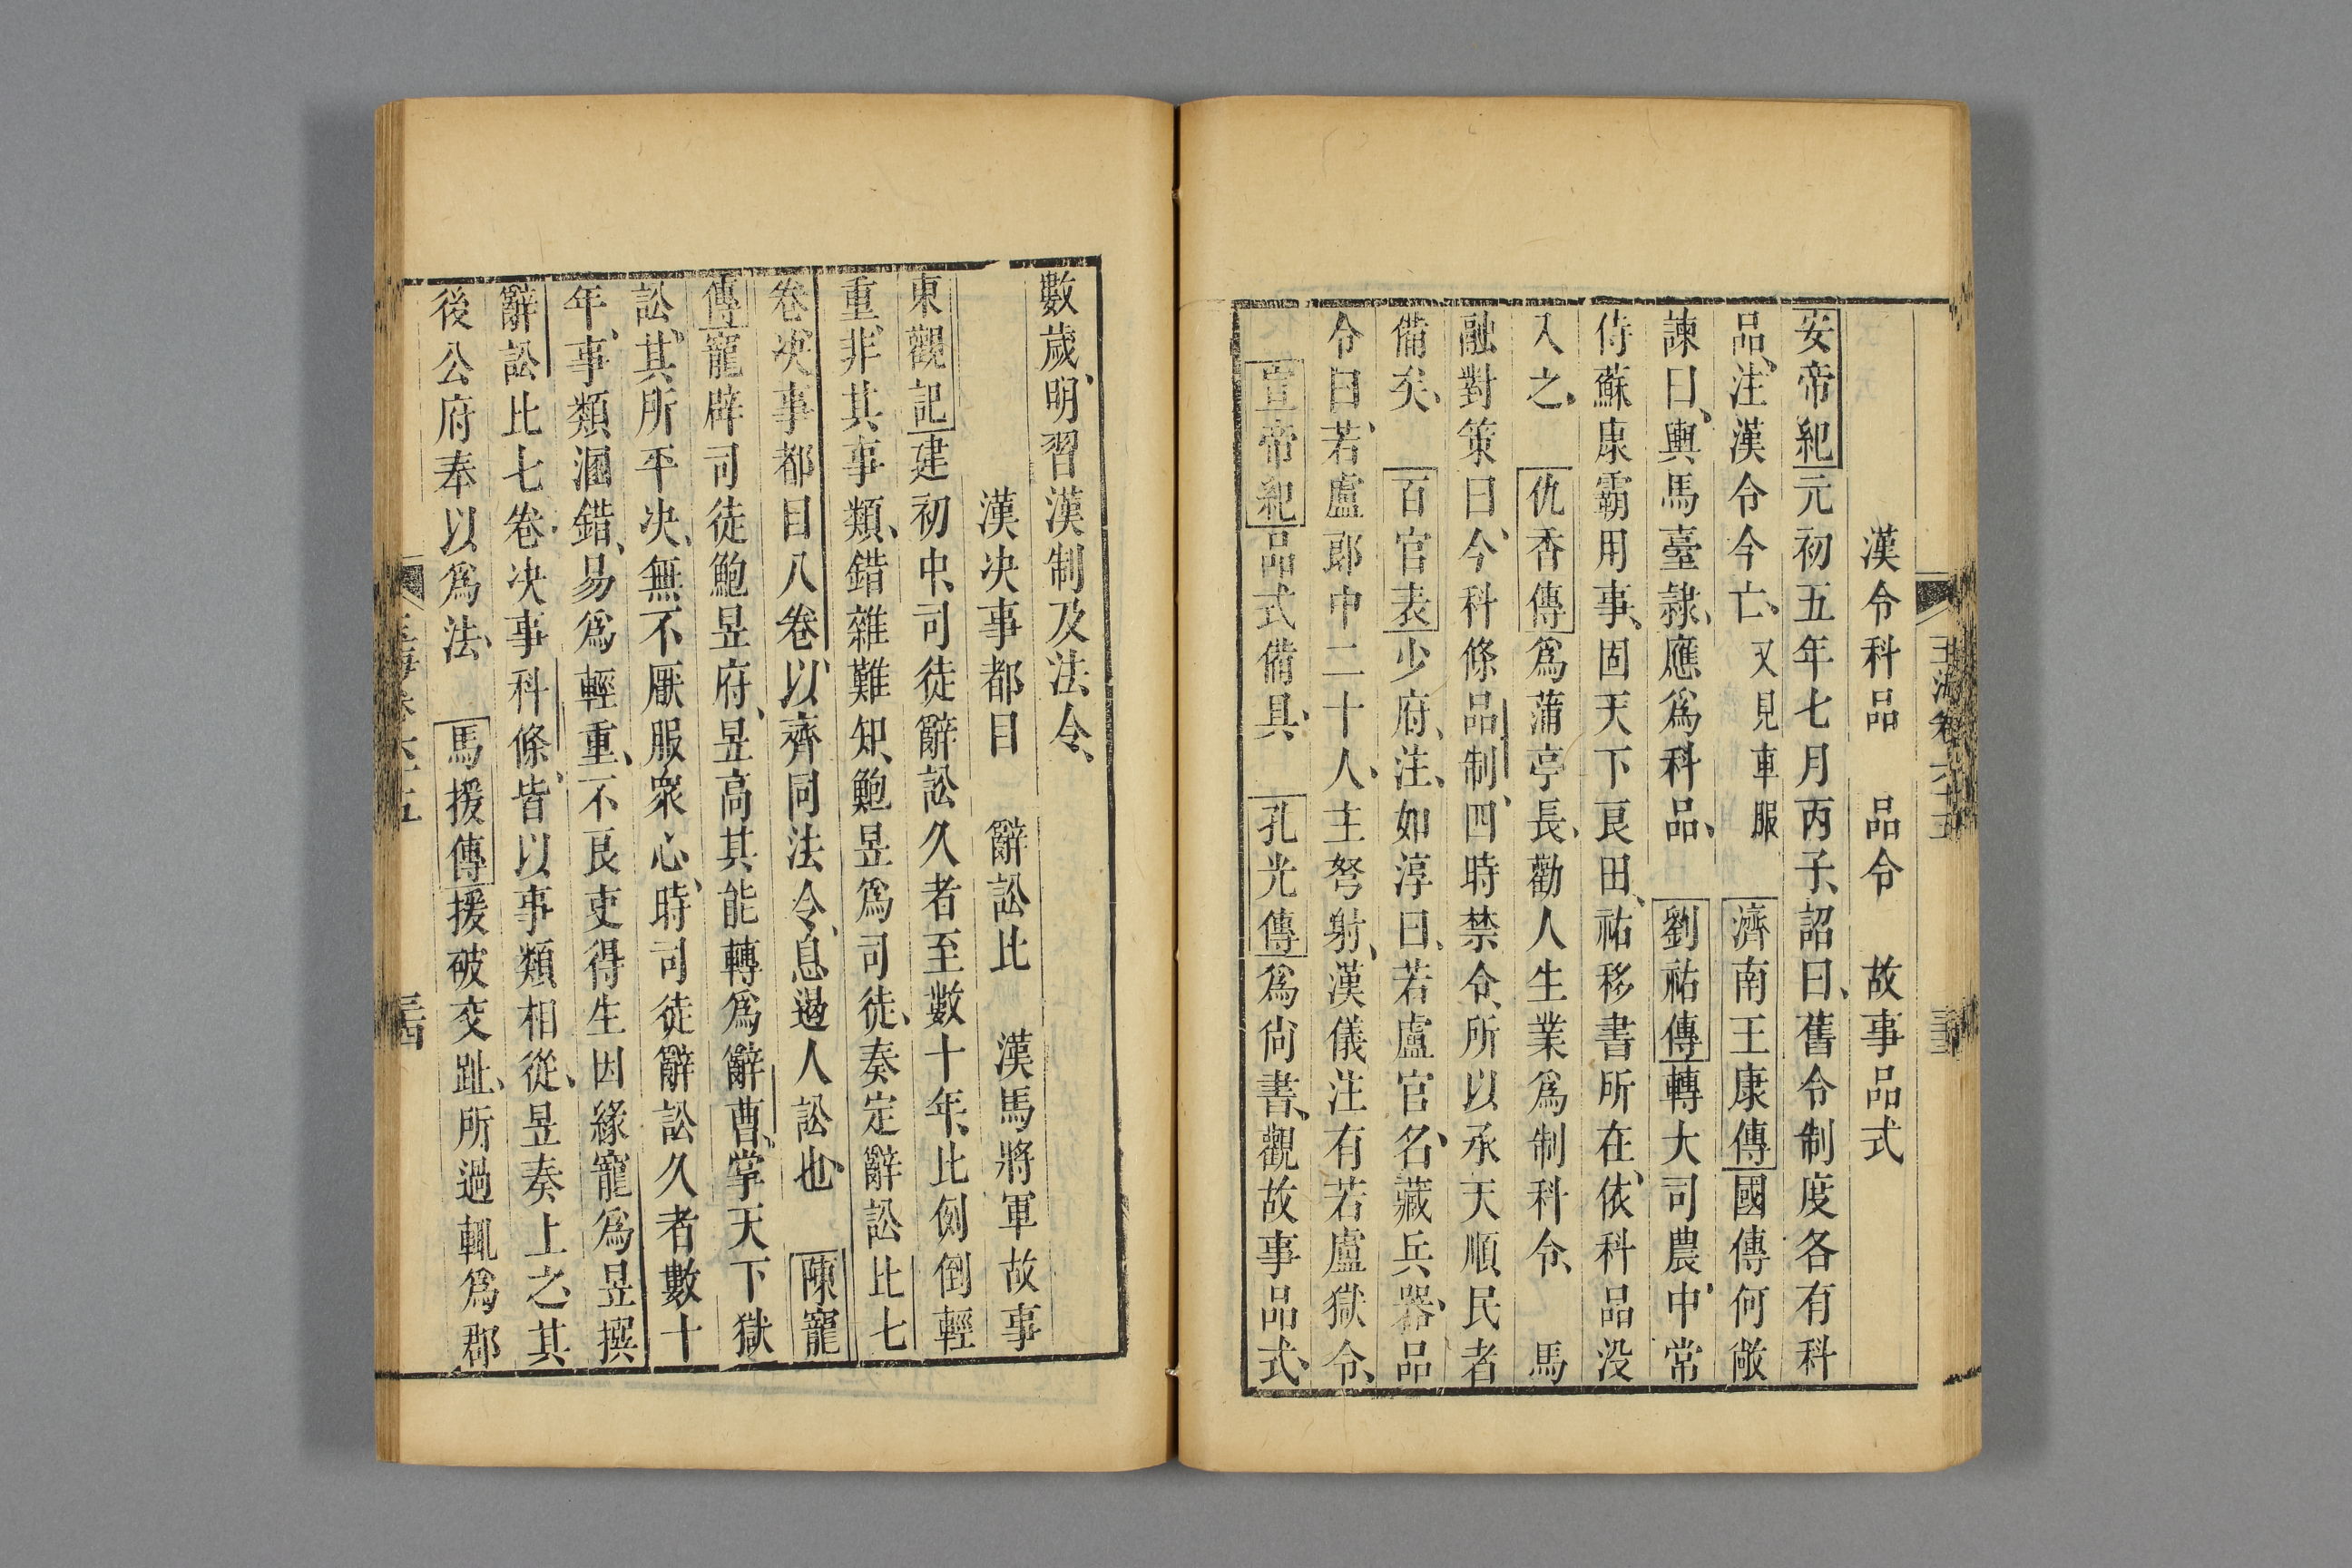 玉海卷六十五
漢令科品　品令　故事品式
安帝紀元初五年七月丙子、詔曰、舊令制度各有科
品、注漢令今亡、又見車服　濟南王康傳國傅何敞
諫曰、輿馬臺隷、應爲科品、　劉祐傳轉大司農、中常
侍蘇康霸用事、固天下良田、祐移書所在、依科品没
入之、　仇香傳爲蒲亭長、勸人生業爲制科令、　馬
融對策曰、今科條品制、四時禁令、所以承天順民者
備矣、　百官表少府、注、如淳曰、若盧官名、藏兵器、品
令曰、若盧郎中二十人、主弩射、漢儀注有若盧獄令、
宣帝紀品式備具、　孔光傳爲尚書、觀故事品式、
數歲、明習漢制及法令、
漢决事都目　辭訟比　漢馬將軍故事
東觀記建初中、司徒辭訟久者至數十年、比例倒輕
重、非其事類、錯雜難知、鮑昱爲司徒、奏定辭訟比七
卷、决事都目八卷、以齊同法令、息遏人訟也、　陳寵
傳寵辟司徒鮑昱府、昱高其能轉爲辭曹、掌天下獄
訟、其所平决、無不厭服衆心、時司徒辭訟久者數十
年、事類溷錯、易爲輕重、不良吏得生因緣寵爲昱撰
辭訟比七卷、决事科條、皆以事類相從、昱奏上之、其
後公府奉以爲法、　馬援傳援破交趾、所過輒爲郡